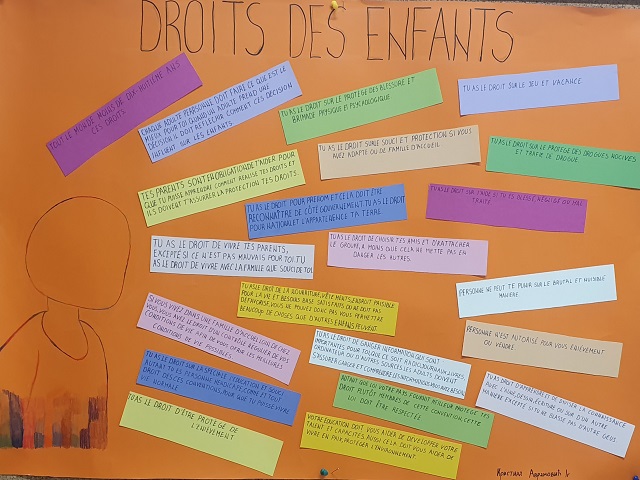 DROITS DES ENFANTS
TOUT LE MONDE MOINS DE DIX-HUITIÈME ANS
CES DROITS
CHAQUE ADULTE PERSONNE DOIT FAIRE CE QUE EST LE
MIEUX POUR TOI QUAND UN ADULTE PREND UNE
DÉCISION IL DOIT RÉFLÉCHIR COMMENT CES DÉCISION
INFLUENT SUR LES ENFANTS
TU AS LE DROIT SUR LE PROTÈGE DES BLESSURE ET
BRIMADE PHYSIQUE ET PSYCHOLOGIQUE
TU AS LE DROIT SUR LE JEU ET VACANCE.
TES PARENTS SONT EN OBLIGATION T'AIDER POUR
QUE TU PUISSE APPRENDRE COMMENT RÉALISE TES DROITS ET
ILS DOIVENT T'ASSURER LA PROTECTION TES DROITS.
TU AS LE DROIT SUR LE SOUCI ET PROTECTION SI VOUS
AVEZ ADAPTÉ OU DE FAMILLE D'ACCUEIL
TU AS LE DROIT SUR LE PROTÈGE DES DROGUES NOCIVES
ET TRAFIC DE DROGUE.
TU AS LE DROIT POUR PRÉNOM ET CELA DOIT ÊTRE
RECONNAÎTRE DE CÔTÉ GOUVERNEMENT TU AS LE DROIT
POUR NATIONAL ET L'APPARTENENCE TA TERRE
TU AS LE DROIT SUR L'AIDE SI TU ES BLESSÉ, NÉGLIGÉ OU MAL
TRAITÉ
TU AS LE DROIT DE VIVRE TES PARENTS,
EXCEPTÉ SI CE N'EST PAS MAUVAIS POUR TOI TU
AS LE DROIT DE VIVRE AVEC LA FAMILLE QUE SOUCI DE TOI
TU AS LE DROIT DE CHOISIR TES AMIS ET D'ATTACHER
LE GROUPE, À MOINS QUE CELA NE METTE PAS EN
DANGER LES AUTRES
PERSONNE NE PEUT TE PUNIR SUR LE BRUTAL ET NUISIBLE
MANIÈRE
TU AS LE DROIT DE LA NOURRITURE, VÊTEMENTS, ENDROIT PAISIBLE
POUR LA VIE ET BESOINS BASE SATISFAITS
DÉFAVORISÉ, VOUS NE POUVEZ DONC PAS VOUS PERMETTRE
BEAUCOUP DE CHOSES QUE D'AUTRES ENFANTS PEUVENT.
SI VOUS VIVEZ DANS UNE FAMILLE D'ACCUEIL LOIN DE CHEZ
VOUS, VOUS AVEZ LE DROIT D'UN CONTRÔLE RÉGULIER DE VOS
CONDITIONS DE VIE AFIN DE VOUS OFFRIR LES MEILLEURES
CONDITIONS DE VIE POSSIBLES.
TU AS LE DROIT DE GAGNER INFORMATION QUI SONT
IMPORTANTES POUR TOI
ORDINATEUR OU D'AUTRES SOURCES LES ADULTES DEVIENT
PERSONNE N'EST AUTORISÉ POUR VOUS ENLÈVEMENT
OU VENDRE.
TU AS LE DROIT SUR LA SPÉCIALE ÉDUCATION ET SOUCI
AUTANT TU ES PERSONNE HANDICAPÉE COMME ET TOUT
DROIT DES CES CONVENTIONS, POUR QUE TU PUISSE VIVRE
VIE NORMALE
AUTANT QUE LUI VOTRE PAYS FOURNIT MEILLEUR PROTÈGE TES
DROIT PLUTÔT MEMBRES DE CETTE CONVENTION CETTE
LUI DOIT ÊTRE RESPECTÉE
TU AS LE DROIT D'APPRENDRE ET DE DIVISER LA CONNAISSANCE
AVEC L'AUTRE, DESSIN, ÉCRITURE OU SUR D'UN AUTRE
MANIÈRE EXCEPTÉ SI TU NE BLESSE PAS D'AUTRE GENS.
TU AS LE DROIT D'ÊTRE PROTÉGÉ DE
L'ENLÈVEMENT
VOTRE ÉDUCATION DOIT VOUS AIDER DE DÉVELOPPER VOTRE
TALENT ET CAPACITÉS AUSSI CELA DOIT VOUS AIDER DE
VIVRE EN PAIX, PROTÉGER L'ENVIRONNEMENT